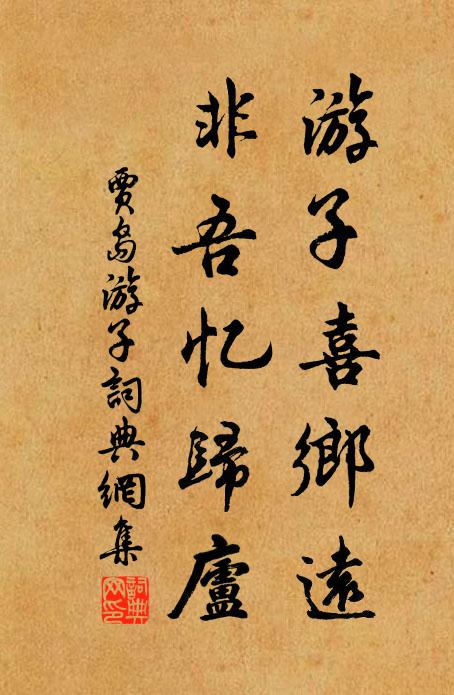 游子喜鄉遠
非吾忆歸廬
賈島游子詞典網集
詞典网印